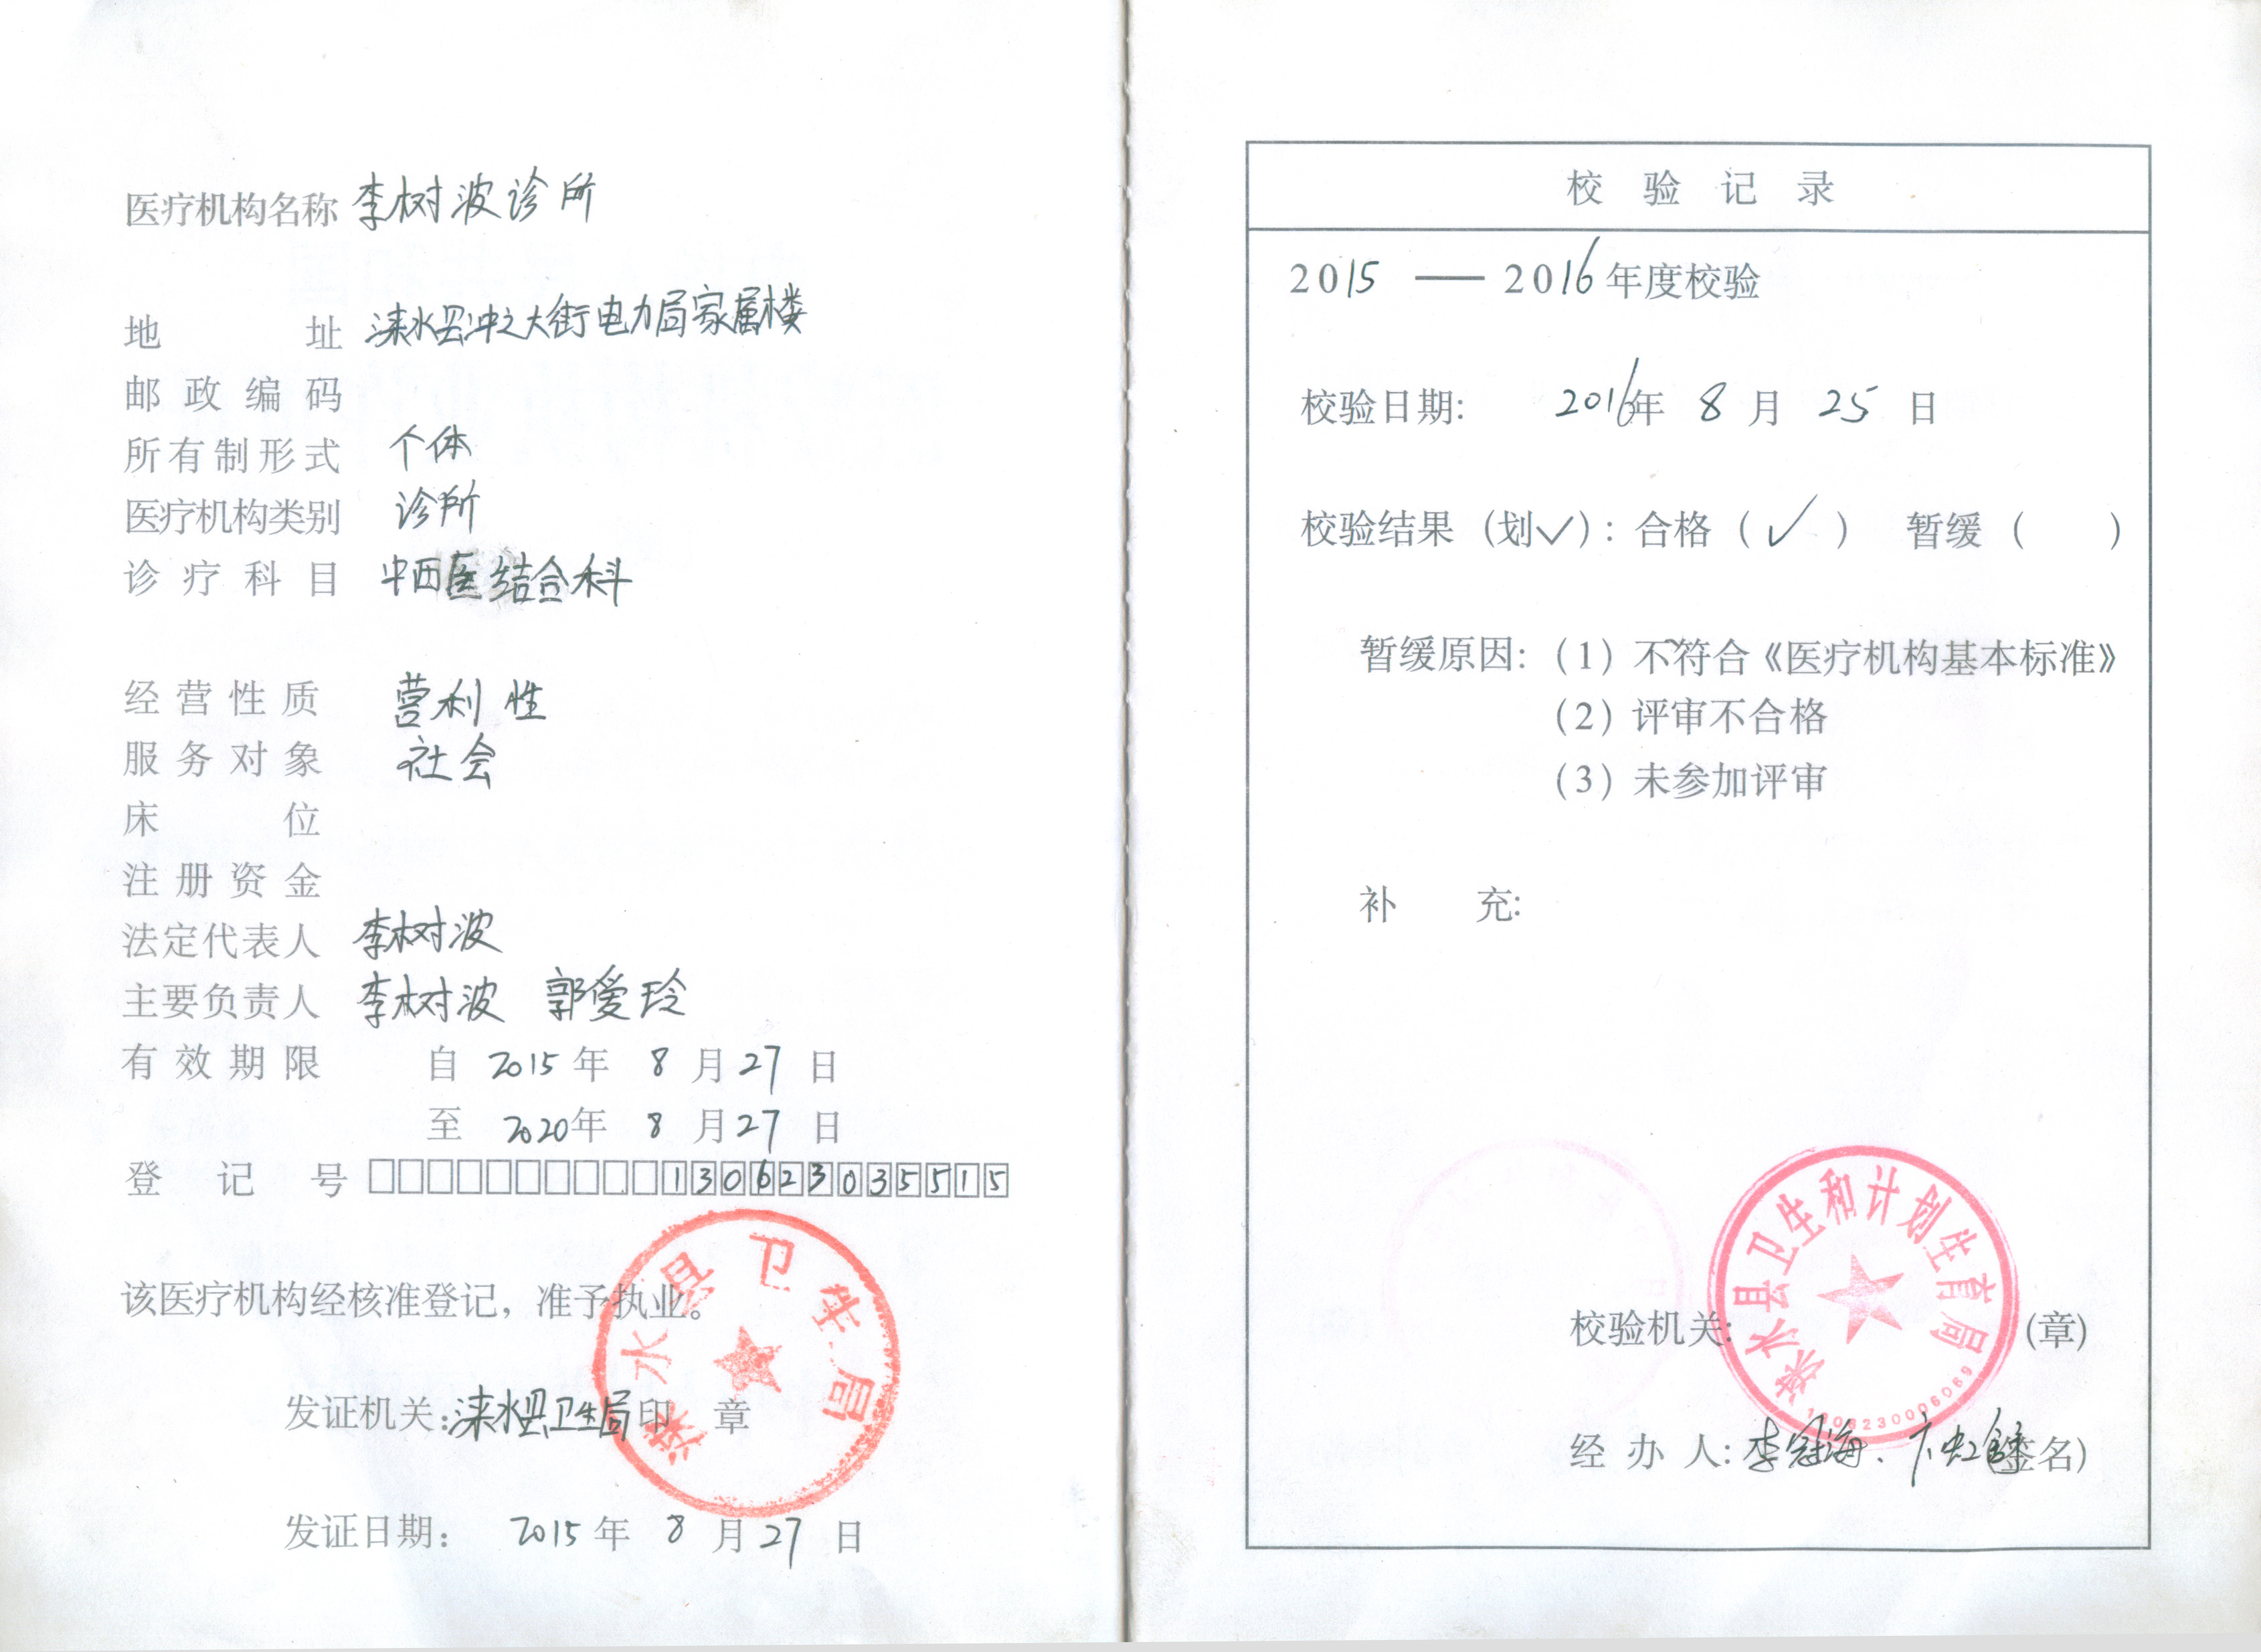 医疗机构名称 李树波诊所
地址 涞水县冲之大街电力局家属楼
邮政编码
所有制形式 个体
医疗机构类别 诊所
诊疗科目 中西医结合科
经营性质 营利性
服务对象 社会
床位
注册资金
法定代表人 李树波
主要负责人 李树波 郭爱玲
有效期限 自 2015 年 8 月 27 日
至 2020 年 8 月 27 日
登记号 130623035515
该医疗机构经核准登记，准予执业。
发证机关：涞水县卫生局 印章
涞水县卫生局
发证日期： 2015 年 8 月 27 日
校验记录
2015 — 2016 年度校验
校验日期： 2016 年 8 月 25 日
校验结果（划✓）：合格（✓） 暂缓（ ）
暂缓原因：（1）不符合《医疗机构基本标准》
（2）评审不合格
（3）未参加评审
补充：
校验机关： (章)
涞水县卫生和计划生育局
1306230006069
经办人：李冠海、 (签名)